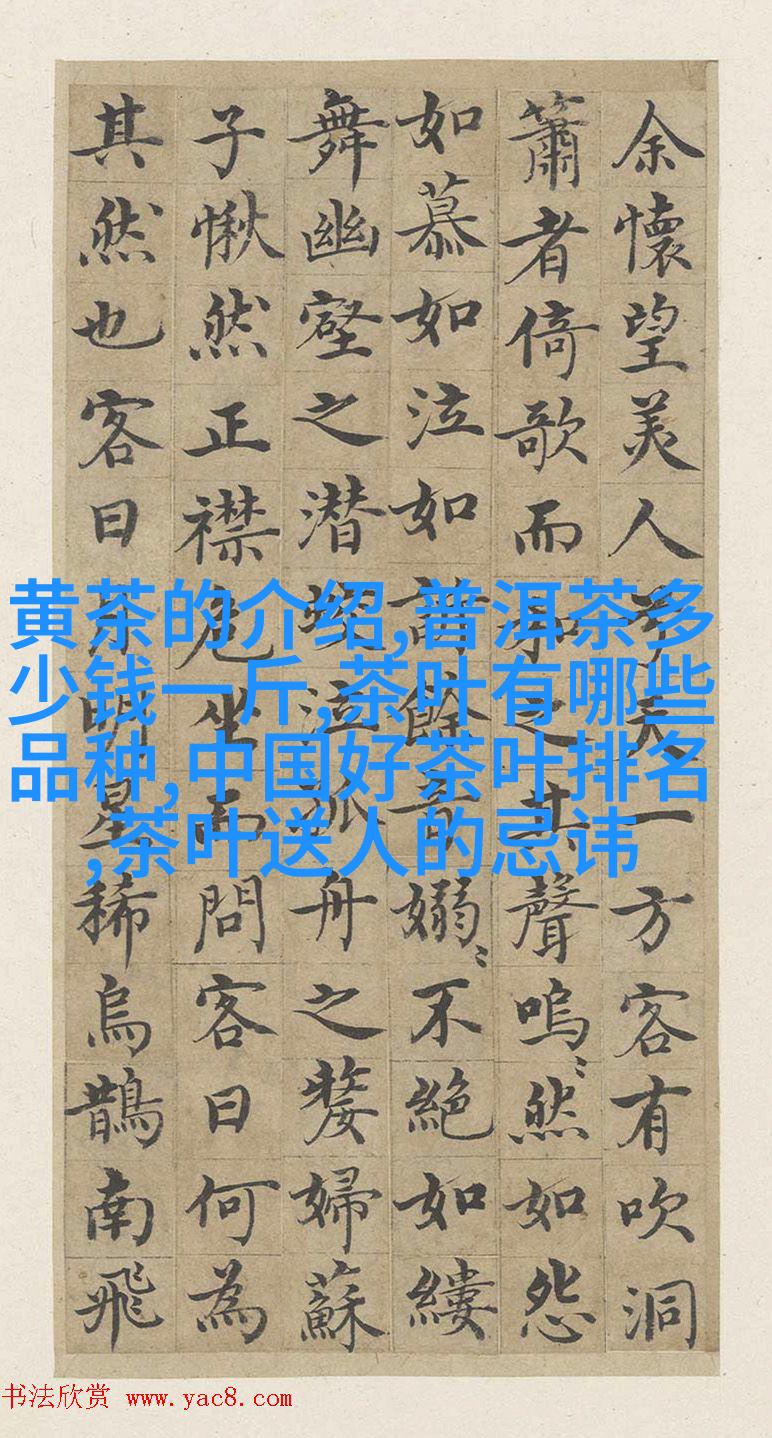 余懷望美人兮天一方客有吹洞
簫者倚歌而和之其聲嗚〻然如怨
如慕如泣如訴餘音嫋〻不絶如縷
舞幽壑之潜蛟泣孤舟之嫠婦蘇
子愀然正襟危坐而問客曰何為
其然也客曰月明星稀烏鵲南飛
黄茶的介绍,普洱茶多
少钱一斤,茶叶有哪些
品种,中国好茶叶排名
,茶叶送人的忌讳
书法欣赏 www.yac8.com